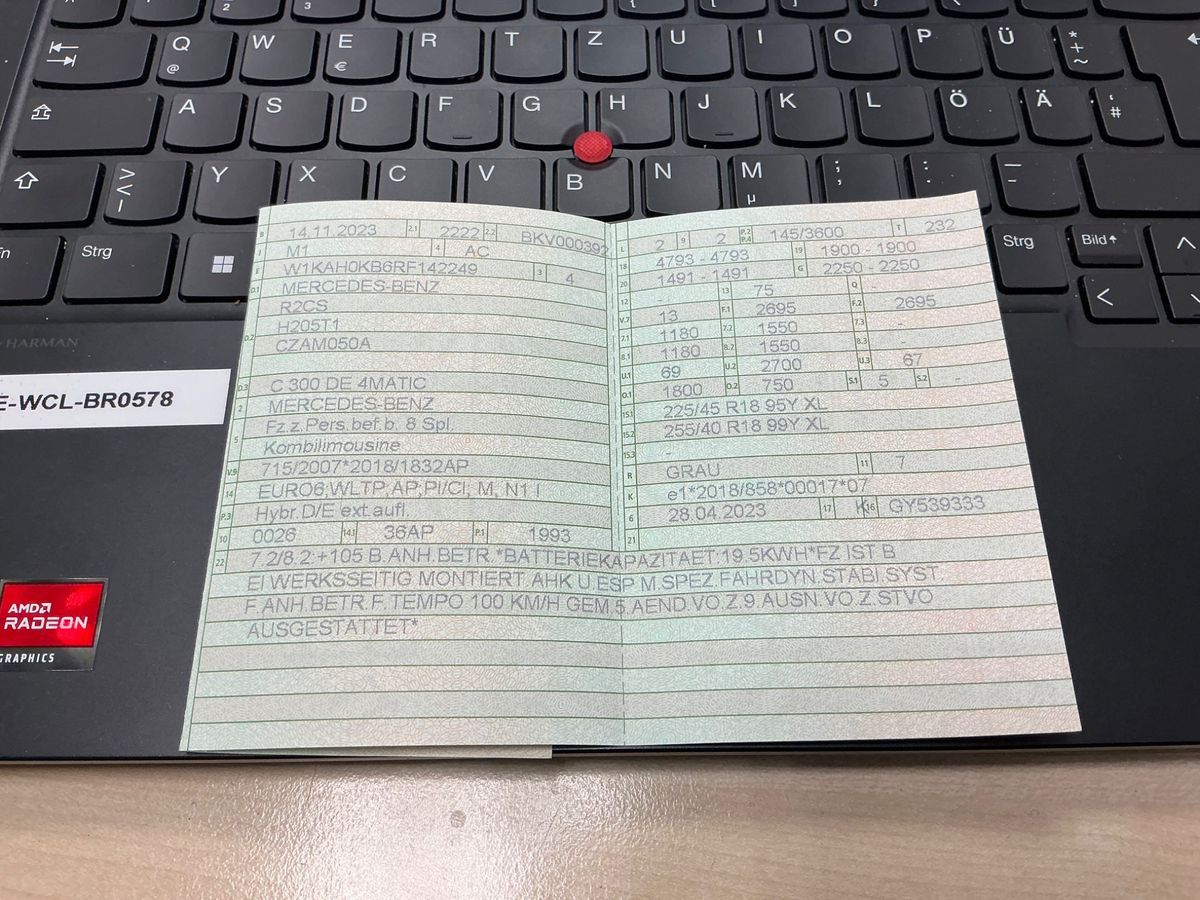 Q W E R T Z U I O P Ü * + ~
@ €
A S D F G H J K L Ö Ä ' #
> < | Y X C V B N M ; , : . _ -
µ
Strg
Strg Bild
HARMAN
E-WCL-BR0578
AMD
RADEON
GRAPHICS
B 14.11.2023 2.1 2222 2.2 BKV000392
J M1 4 AC
E W1KAH0KB6RF142249 3 4
D.1 MERCEDES-BENZ
R2CS
D.2 H205T1
CZAM050A
D.3 C 300 DE 4MATIC
2 MERCEDES-BENZ
5 Fz.z.Pers.bef.b. 8 Spl.
Kombilimousine
V.9 715/2007*2018/1832AP
14 EURO6;WLTP;AP;PI/CI, M, N1 I
P.3 Hybr.D/E ext.aufl.
10 0026 14.1 36AP P.1 1993
L 2 9 2 P.2 P.4 145/3600 T 232
18 4793 - 4793 19 1900 - 1900
20 1491 - 1491 G 2250 - 2250
12 - 13 75 Q -
V.7 13 F.1 2695 F.2 2695
7.1 1180 7.2 1550 7.3 -
8.1 1180 8.2 1550 8.3 -
U.1 69 U.2 2700 U.3 67
O.1 1800 O.2 750 S.1 5 S.2 -
15.1 225/45 R18 95Y XL
15.2 255/40 R18 99Y XL
15.3 -
R GRAU 11 7
K e1*2018/858*00017*07
6 28.04.2023 17 K 16 GY539333
21
22 7.2/8.2:+105 B.ANH.BETR.*BATTERIEKAPAZITAET:19.5KWH*FZ IST B
EI WERKSSEITIG MONTIERT.AHK U.ESP M.SPEZ.FAHRDYN.STABI.SYST
F.ANH.BETR.F.TEMPO 100 KM/H GEM.5.AEND.VO.Z.9.AUSN.VO.Z.STVO
AUSGESTATTET*